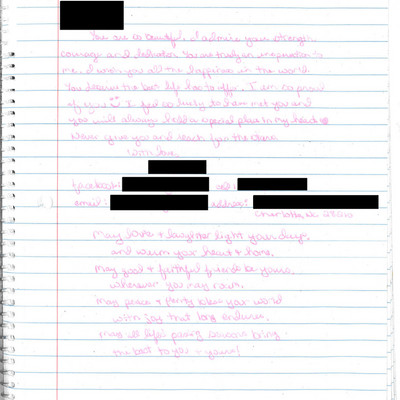 You are so beautiful. I admire your strength
courage and dedication. You are truly an inspiration to
me. I wish you all the happiness in the world.
You deserve the best life has to offer. I am so proud
of you ☺ I feel so lucky to have met you and
you will always hold a special place in my heart ♥
Never give up and reach for the stars.
With love,
facebook: cell:
email: address:
Charlotte, NC
May love + laughter light your days,
and warm your heart + home.
May good + faithful friends be yours,
wherever you may roam.
May peace + plenty bless your world
with joy that long endures.
May all life's passing seasons bring
the best to you + yours!